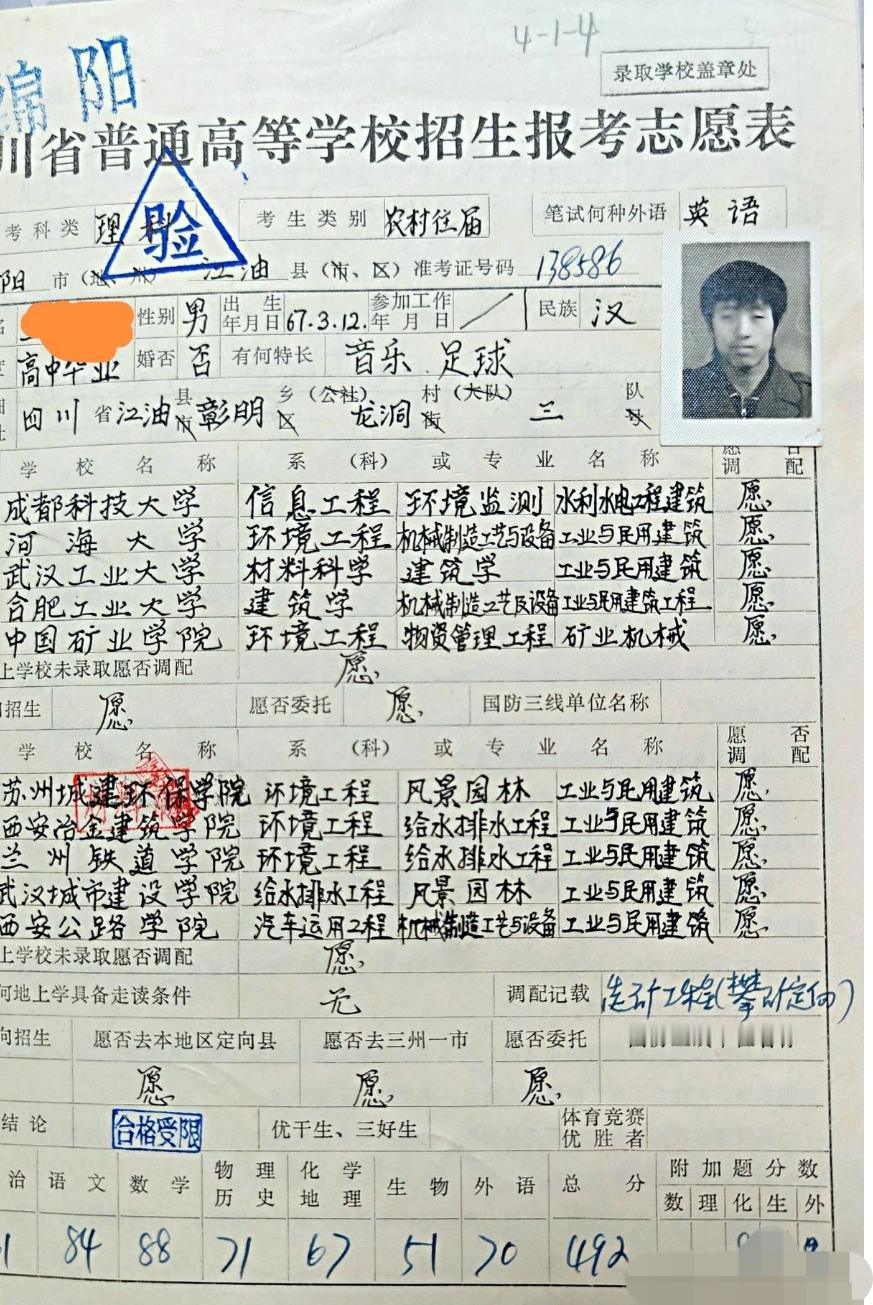 4-1-4
绵阳
录取学校盖章处
川省普通高等学校招生报考志愿表
考科类 理科 考生类别 农村往届 笔试何种外语 英语
验
阳 市(地、州) 江油 县(市、区)准考证号码 138586
名 性别 男 出生年月日 67.3.12. 参加工作年月日 / 民族 汉
高中毕业 婚否 否 有何特长 音乐 足球
四川 省 江油 县市 彰明 乡(公社)区 龙洞 村(大队)街 三 队号
学校名称 系(科)或专业名称 愿否调配
成都科技大学 信息工程 环境监测 水利水电工程建筑 愿
河海大学 环境工程 机械制造工艺与设备 工业与民用建筑 愿
武汉工业大学 材料科学 建筑学 工业与民用建筑 愿
合肥工业大学 建筑学 机械制造工艺及设备 工业与民用建筑工程 愿
中国矿业学院 环境工程 物资管理工程 矿业机械 愿
上学校未录取愿否调配 愿
招生 愿 愿否委托 愿 国防三线单位名称
学校名称 系(科)或专业名称 愿否调配
苏州城建环保学院 环境工程 风景园林 工业与民用建筑 愿
西安冶金建筑学院 环境工程 给水排水工程 工业与民用建筑 愿
兰州铁道学院 环境工程 给水排水工程 工业与民用建筑 愿
武汉城市建设学院 给水排水工程 风景园林 工业与民用建筑 愿
西安公路学院 汽车运用工程 机械制造工艺与设备 工业与民用建筑 愿
上学校未录取愿否调配 愿
何地上学具备走读条件 无 调配记载 选矿工程(攀矿定向)
向招生 愿否去本地区定向县 愿否去三州一市 愿否委托
愿 愿 愿
结论 合格受限 优干生、三好生 体育竞赛优胜者
治 语文 数学 物理历史 化学地理 生物 外语 总分 附加题分数
数 理 化 生 外
84 88 71 67 51 70 492